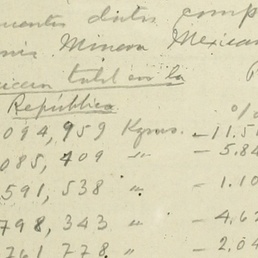 datos comp
Minera Mexican
total en la
República
094,959 Kgms. - 11.5
085,409 " - 5.84
591,538 " - 1.10
798,343 " - 4.62
761,778 " - 2.04